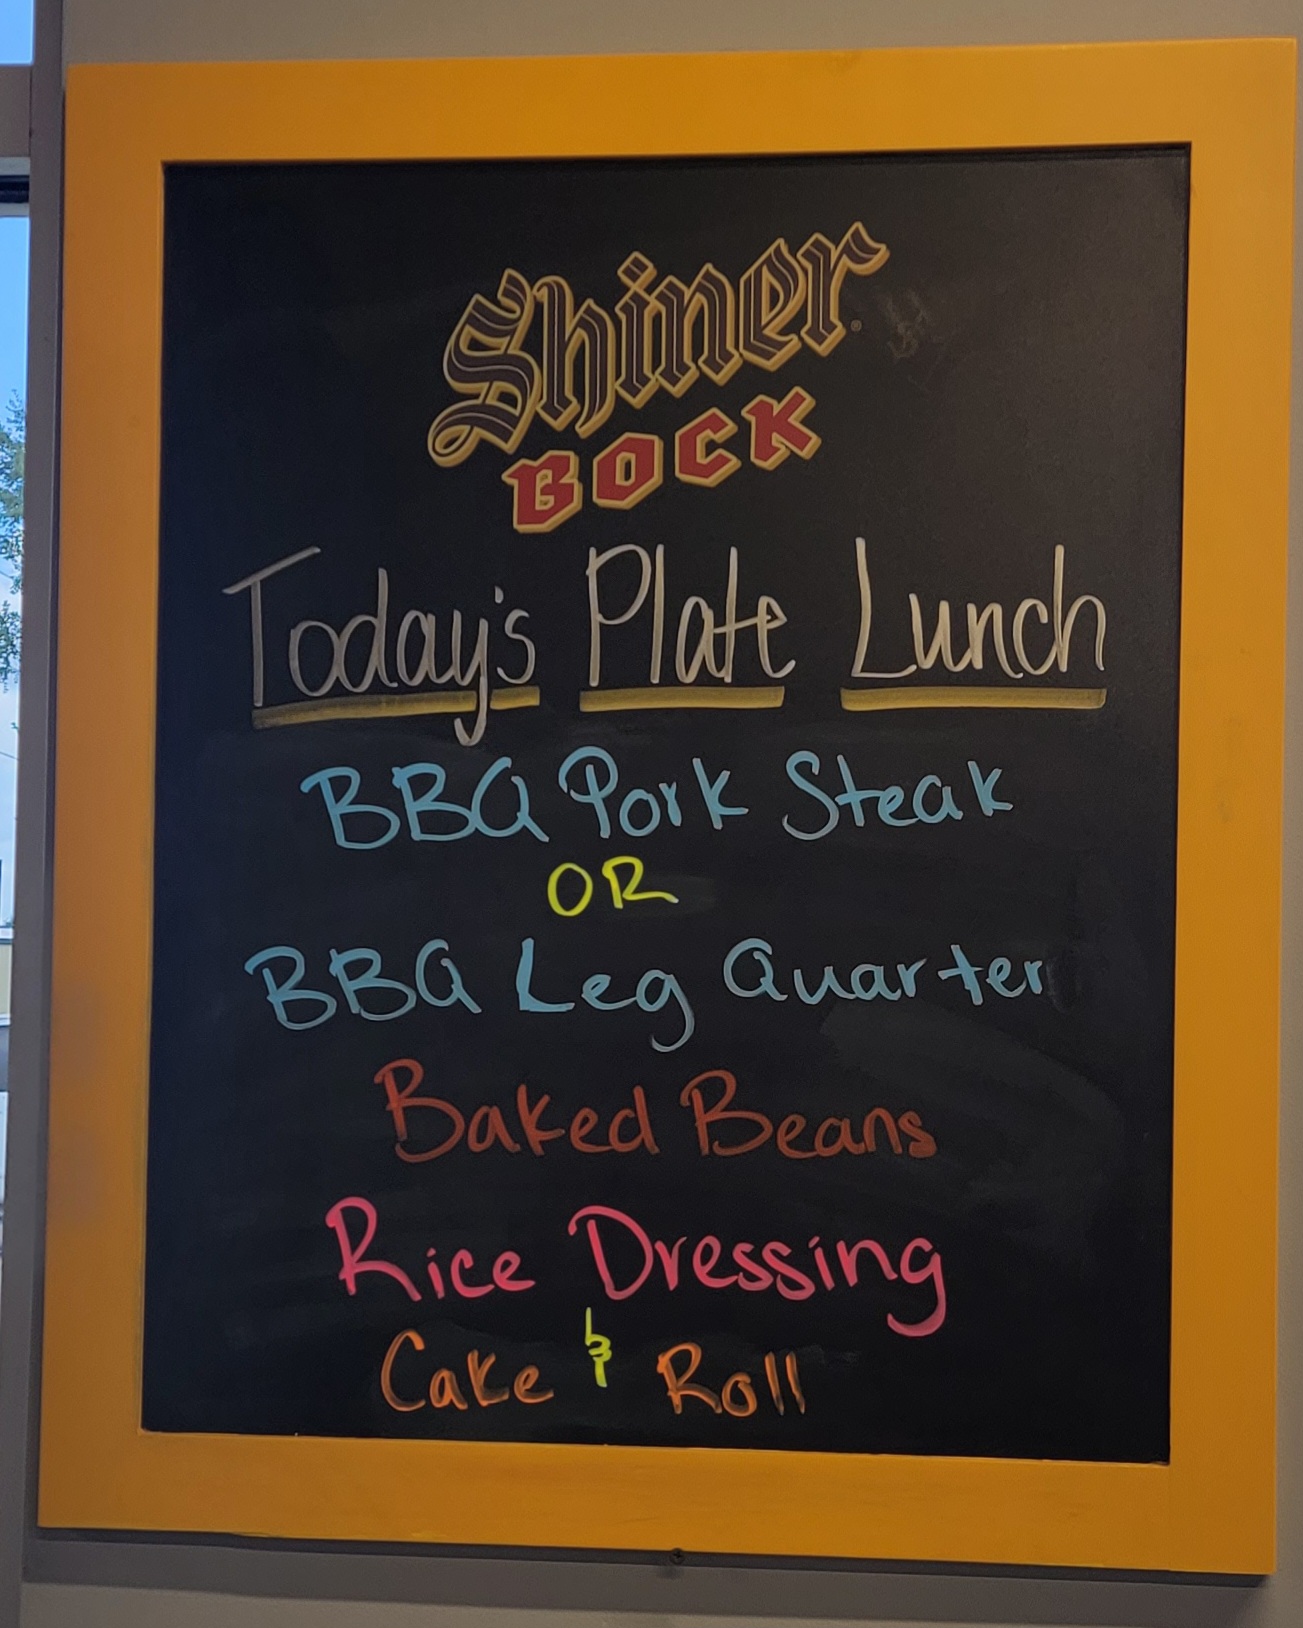 Shiner
BOCK
Today's Plate Lunch
BBQ Pork Steak
OR
BBQ Leg Quarter
Baked Beans
Rice Dressing
Cake & Roll